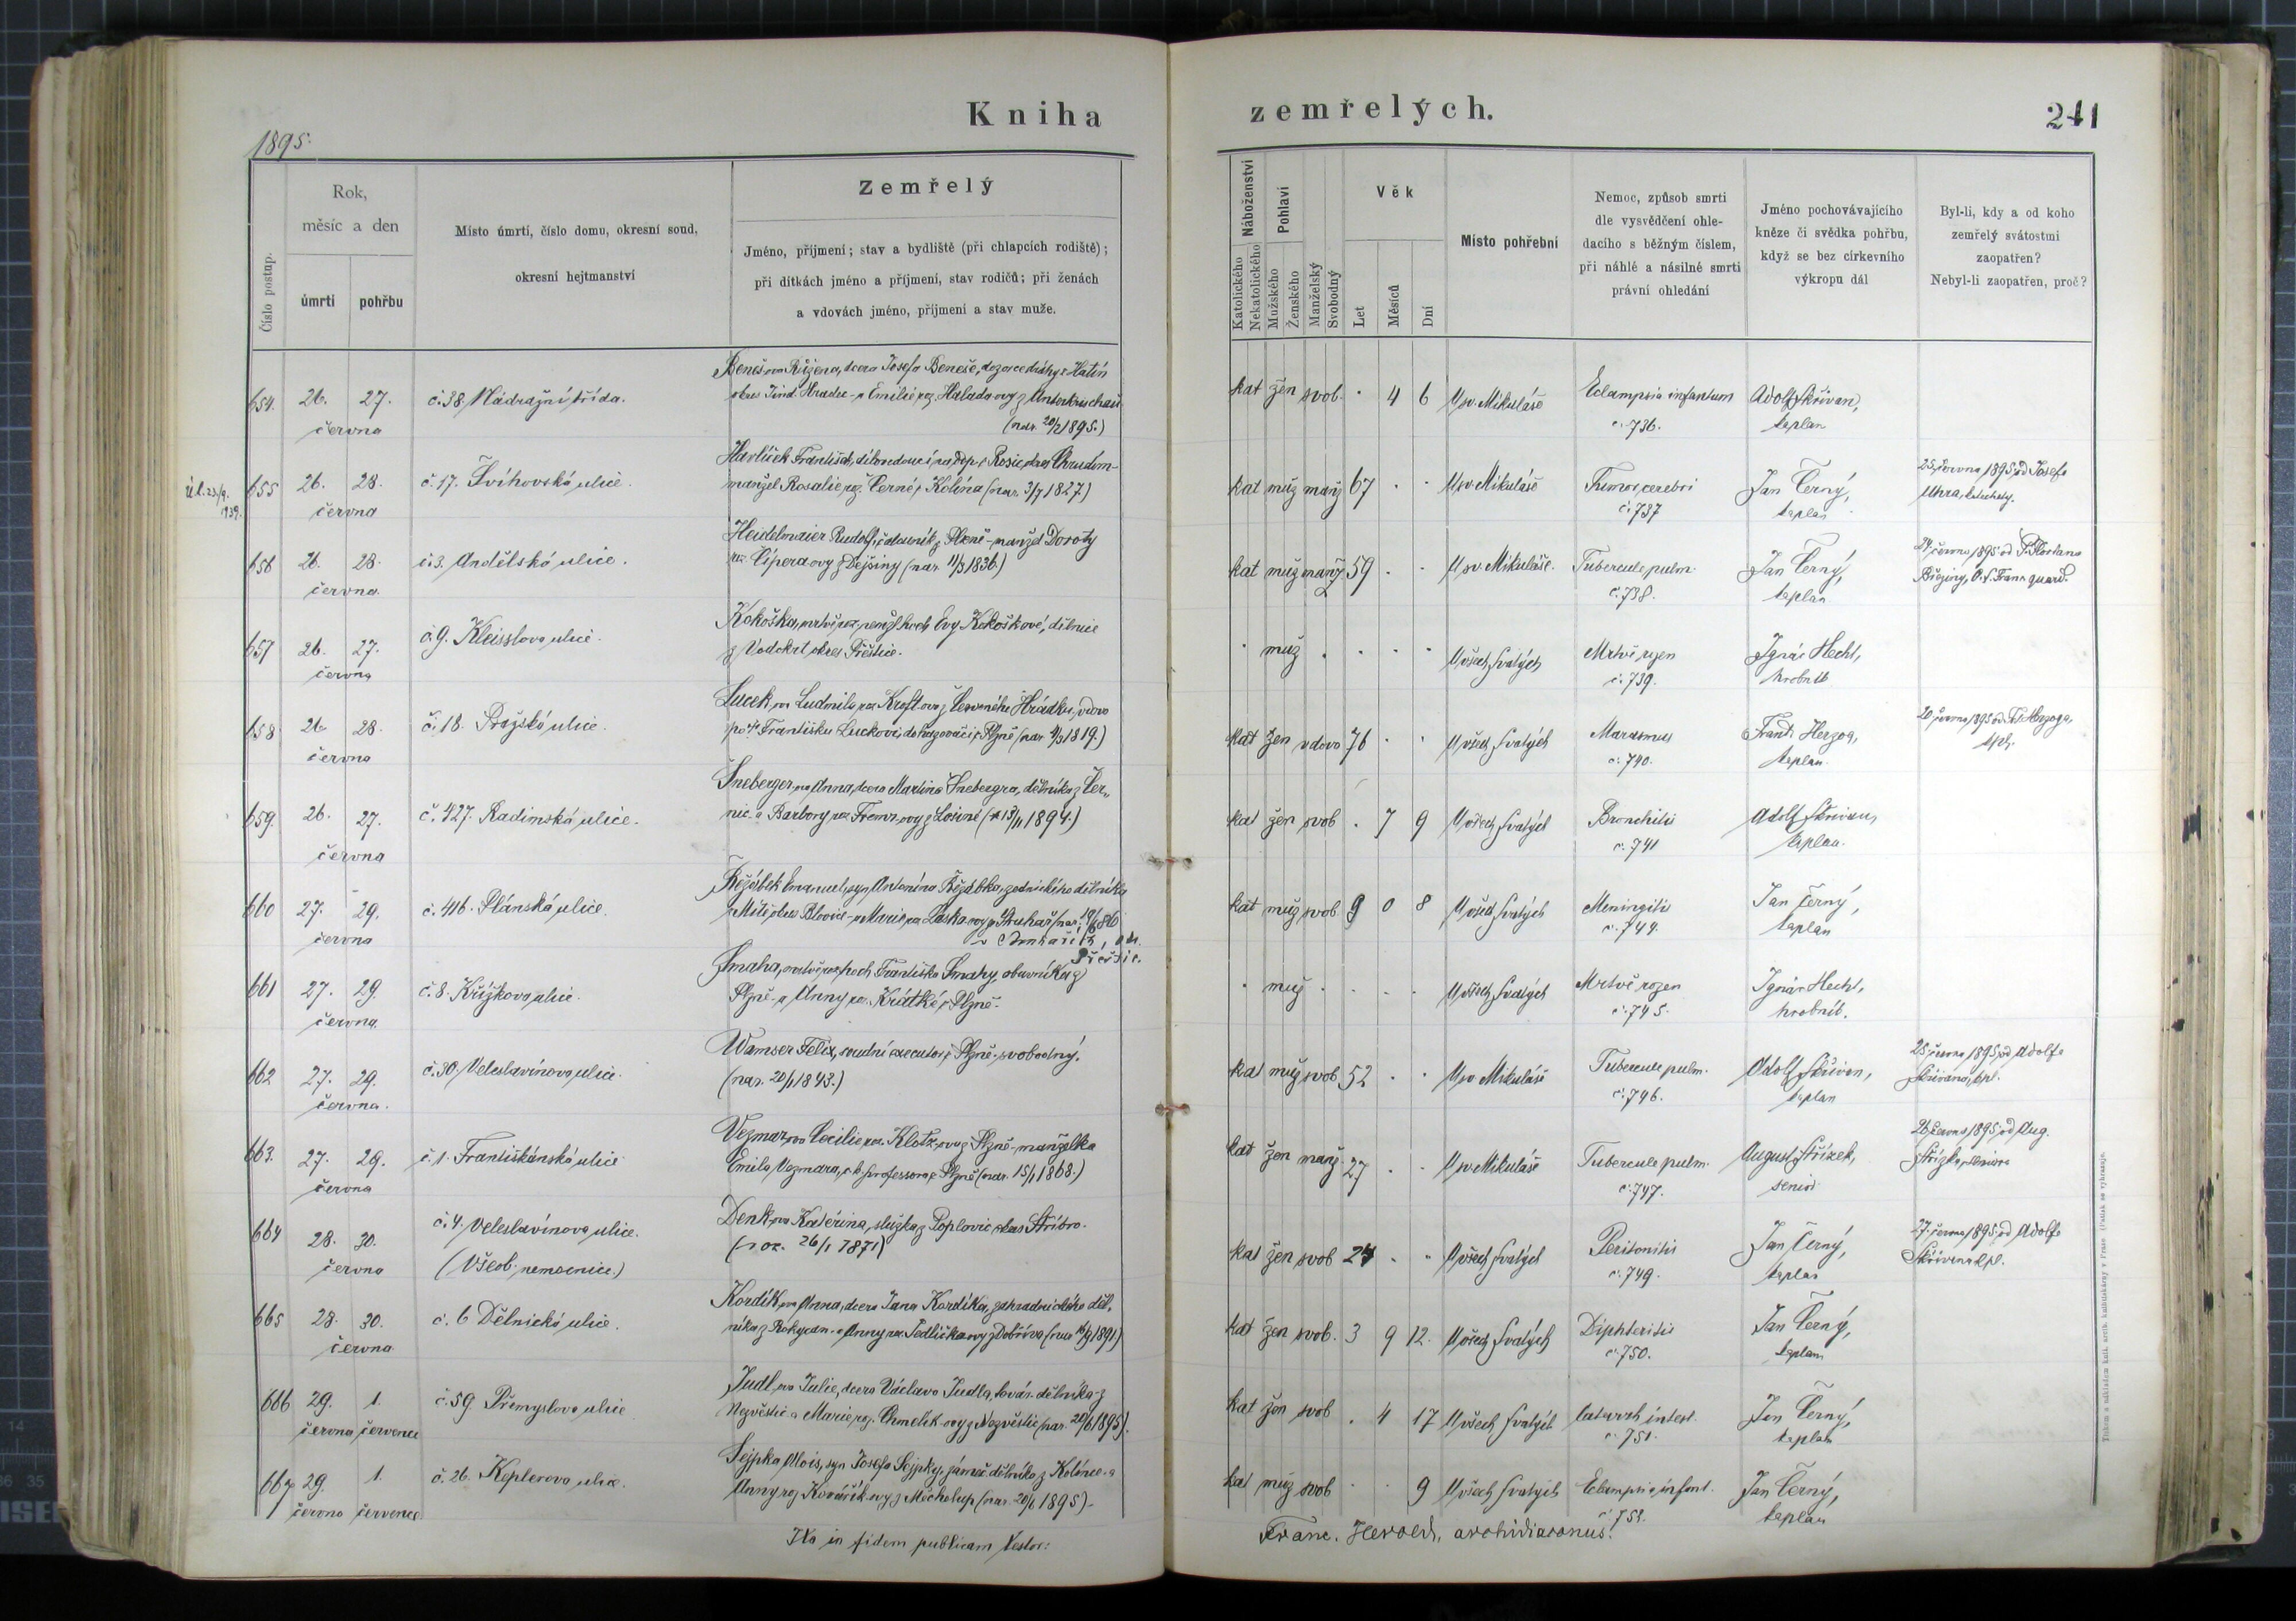 Kniha
zemřelých.
241
1895.
Číslo postup.
Rok,
měsíc a den
úmrtí
pohřbu
Místo úmrtí, číslo domu, okresní soud,
okresní hejtmanství
Zemřelý
Jméno, příjmení; stav a bydliště (při chlapcích rodiště);
při dítkách jméno a příjmení, stav rodičů; při ženách
a vdovách jméno, příjmení a stav muže.
Náboženství
Katolického
Nekatolického
Pohlaví
Mužského
Ženského
Manželský
Svobodný
Věk
Let
Měsíců
Dní
Místo pohřební
Nemoc, způsob smrti
dle vysvědčení ohle-
dacího s běžným číslem,
při náhlé a násilné smrti
právní ohledání
Jméno pochovávajícího
kněze či svědka pohřbu,
když se bez církevního
výkropu dál
Byl-li, kdy a od koho
zemřelý svátostmi
zaopatřen?
Nebyl-li zaopatřen, proč?
654. 26. 27. č. 38. Nádražní třída.
června
Benešova Růžena, dcera Josefa Beneše, dozorce dráhy z Hatín
okres Jind. Hradec - a Emilie roz. Haladovy z
(nar. 20/2 1895.)
kat žen svob. . 4 6 U sv. Mikuláše Eclampsia infantum Adolf Skřivan,
č. 736. kaplan
655 26. 28. č. 17. Švihovská ulice.
června
23/9. 1939.
Havlíček František, dílovedoucí na z Rosic, okres Chrudim -
manžel Rosalie roz. Černé z Kolína (nar. 3/7 1827.)
kat muž manž 67 . . U sv. Mikuláše Tumor cerebri Jan Černý,
č. 737 kaplan
25. června 1895 od Josefa
Uhra, katechety.
656 26. 28. č. 3. Andělská ulice.
června.
Heidelmaier Rudolf, čalouník z Plzně - manžel Doroty
roz. Cíperaovy z Dejšiny (nar. 11/3 1836.)
kat muž manž 59 . . U sv. Mikuláše. Tubercule pulm. Jan Černý,
č. 738. kaplan
24. června 1895 od P. Floriana
Březiny, O. S. Franc. guard.
657 26. 27. č. 9. Kleisslova ulice.
června
Kokoška, mrtvě roz. nemž. hoch Evy Kokoškové, dělnice
z Vodokrt okres Přeštice.
. muž . . . . U všech Svatých Mrtvě rozen Ignác Hecht,
č. 739. hrobník
658 26 28. č. 18. Pražská ulice.
června
Lucek, ova Ludmila roz. Kroftova z Červeného Hrádku, vdova
po † Františku Luckovi, dohazovači z Plzně (nar. 4/3 1819.)
kat žen vdova 76 . . U všech Svatých Marasmus Frant. Herzog,
č. 740. kaplan.
20. června 1895 od Fr. Herzoga,
kpl.
659. 26. 27. č. 427. Radimská ulice.
června
Šneberger, ova Anna, dcera Martina Šnebergra, dělníka z Čer„
nic. a Barbory roz. ovy z Losiné (* 15/11 1894.)
kat žen svob . 7 9 U všech Svatých Bronchitis Adolf Skřivan,
č. 741 kaplan.
660 27. 29. č. 416. Plánská ulice.
června
Řežábek Emanuel, syn Antonína Řežábka, zednického dělníka
z Mítě, okres Blovice - a Marie roz. Láska ovy z (nar. 19/6 86
v
kat muž svob. 9 0 8 U všech Svatých Meningitis Jan Černý,
č. 744. kaplan
661 27. 29. č. 8. Křížkova ulice.
června.
Šmaha, mrtvě roz. hoch Františka Šmahy, obuvníka z
Plzně - a Anny roz. Krátké z Plzně.
. muž . . . . U všech Svatých Mrtvě rozen Ignác Hecht,
č. 745. hrobník.
662 27. 29. č. 30. Veleslavínova ulice.
června.
Wamser Felix, soudní executor z Plzně, svobodný.
(nar. 20/1 1843.)
kat muž svob 52 . . U sv Mikuláše Tubercule pulm. Adolf Skřivan,
č. 746. kaplan
25. června 1895 od Adolfa
Skřivana, kpl.
663. 27. 29. č. 1. Františkánská ulice
června
Vezmar, ova Cecilie roz. Klotz, ova z Plzně - manželka
Emila Vezmara, c. k. professora z Plzně (nar. 15/1 1868.)
kat žen manž. 27 . . U sv. Mikuláše Tubercule pulm. August Střízek,
č. 747. senior
26. června 1895 od Aug.
Střízka, seniora
664 28. 30. č. 4. Veleslavínova ulice.
června (Všeob. nemocnice.)
Denk, ova Kateřina, služka z Poplovic okres Stříbro.
(roz. 26/1 1871)
kat žen svob 24 . . U všech Svatých Peritonitis Jan Černý,
č. 749. kaplan
27. června 1895 od Adolfa
Skřivana kpl.
665 28. 30. č. 6 Dělnická ulice.
června
Kordík, ova Anna, dcera Jana Kordíka, zahradnického děl„
níka z Rokycan - a Anny roz. Sedlička ovy z Dobříva (nar. 16/9 1891)
kat žen svob. 3 9 12. U všech Svatých Diphteritis Jan Černý,
č. 750. kaplan
666 29. 1. č. 59. Přemyslova ulice
června července
Judl, ova Julie, dcera Václava Judla, továr. dělníka z
Nezvěstic a Marie roz. Chmelík-ovy z Nezvěstic (nar. 1895).
kat žen svob . 4 17 U všech Svatých Catarrh intest. Jan Černý,
č. 751. kaplan
667 29. 1. č. 26. Keplerova ulice.
června července
Sejpka Alois, syn Josefa Sejpky, zámeč. dělníka z Kolínce - a
Anny roz. Kovářík-ovy z Měcholup (nar. 20/6 1895) -
kat muž svob . . 9 U všech Svatých Eclampsia infant. Jan Černý,
č. 752. kaplan
Ita in fidem publicam testor:
Franc. Herold, archidiaconus.
Tiskem a nákladem kníž. arcib. knihtiskárny v Praze. (Patisk se vyhrazuje.